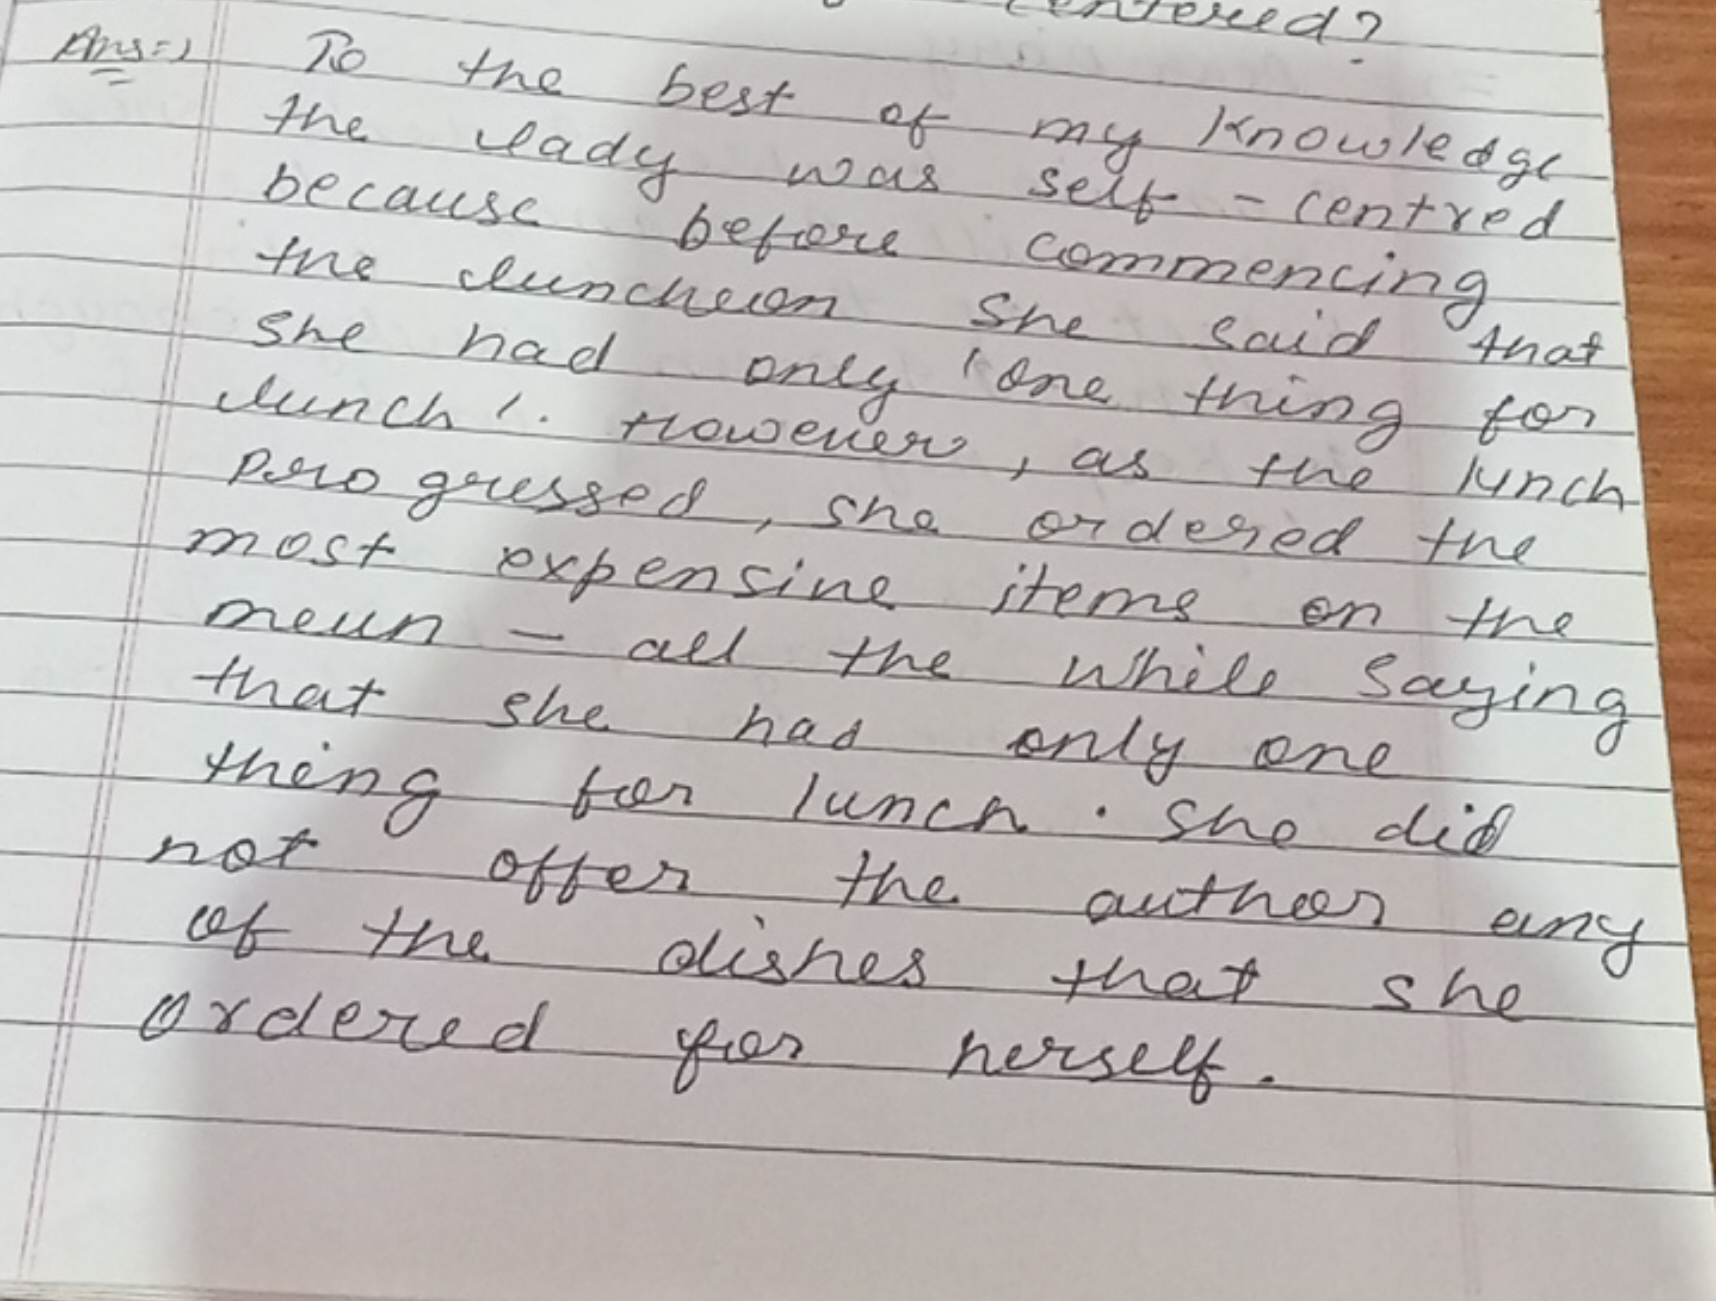 centered?
Ans=> To the best of my Knowledge
the lady was self-centred
because before commencing
the luncheon she said that
she had only 'one thing for
lunch'. However, as the lunch
progressed, she ordered the
most expensive items on the
meun - all the while saying
that she had only one
thing for lunch. She did
not offer the author any
of the dishes that she
ordered for herself.